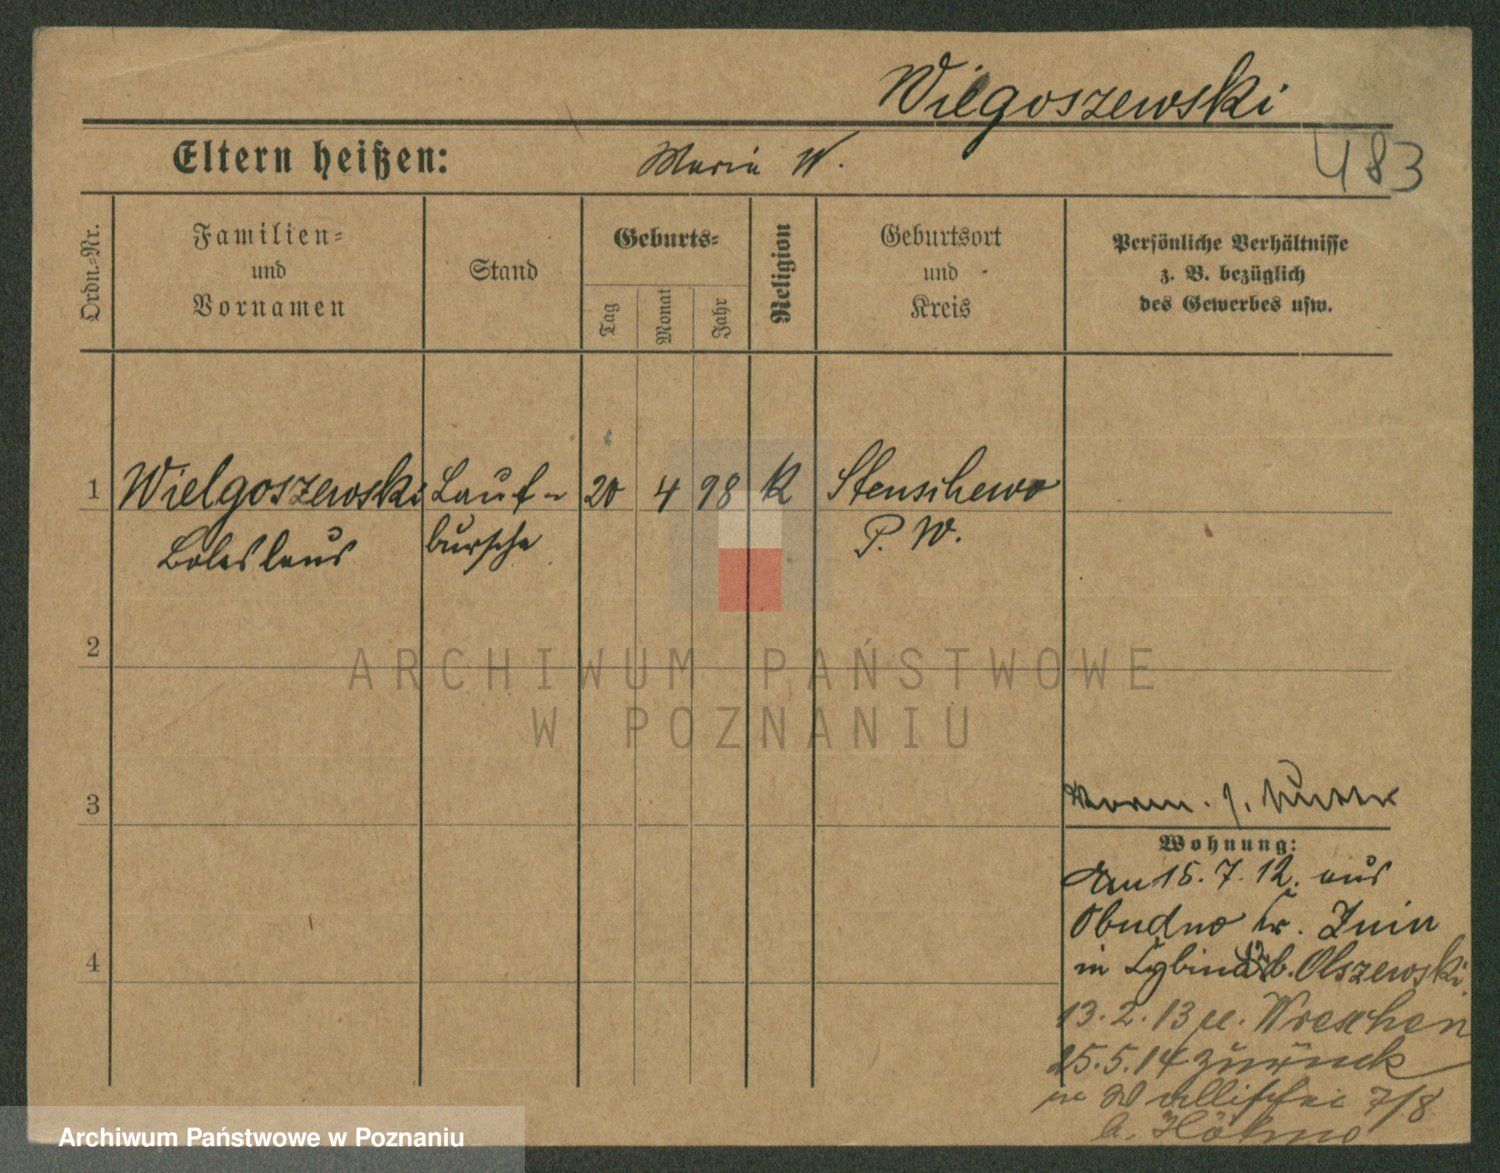 Wielgoszewski
483
Eltern heißen: Maria W.
Ordn.-Nr.
Familien-
und
Vornamen
Stand
Geburts-
Tag
Monat
Jahr
Religion
Geburtsort
und
Kreis
Persönliche Verhältnisse
z. B. bezüglich
des Gewerbes usw.
1 Wielgoszewski Lauf- 20 4 98 K Stenschewo
Boleslaus bursche P. W.
2
ARCHIWUM PAŃSTWOWE
W POZNANIU
3
Mutter
Wohnung:
Am 15.7.12. aus
Obudno Kr. Znin
in Cybina b. Olszewski
13.2.13 n. Wreschen
25.5.14 zurück
Wallischei 7/8
b.
4
Archiwum Państwowe w Poznaniu